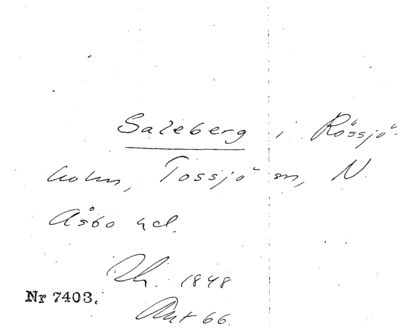 Saleberg i Rössjö-
holm, Tossjö sn, N.
Åsbo hd.
1848
Nr 7403.
Akt 66